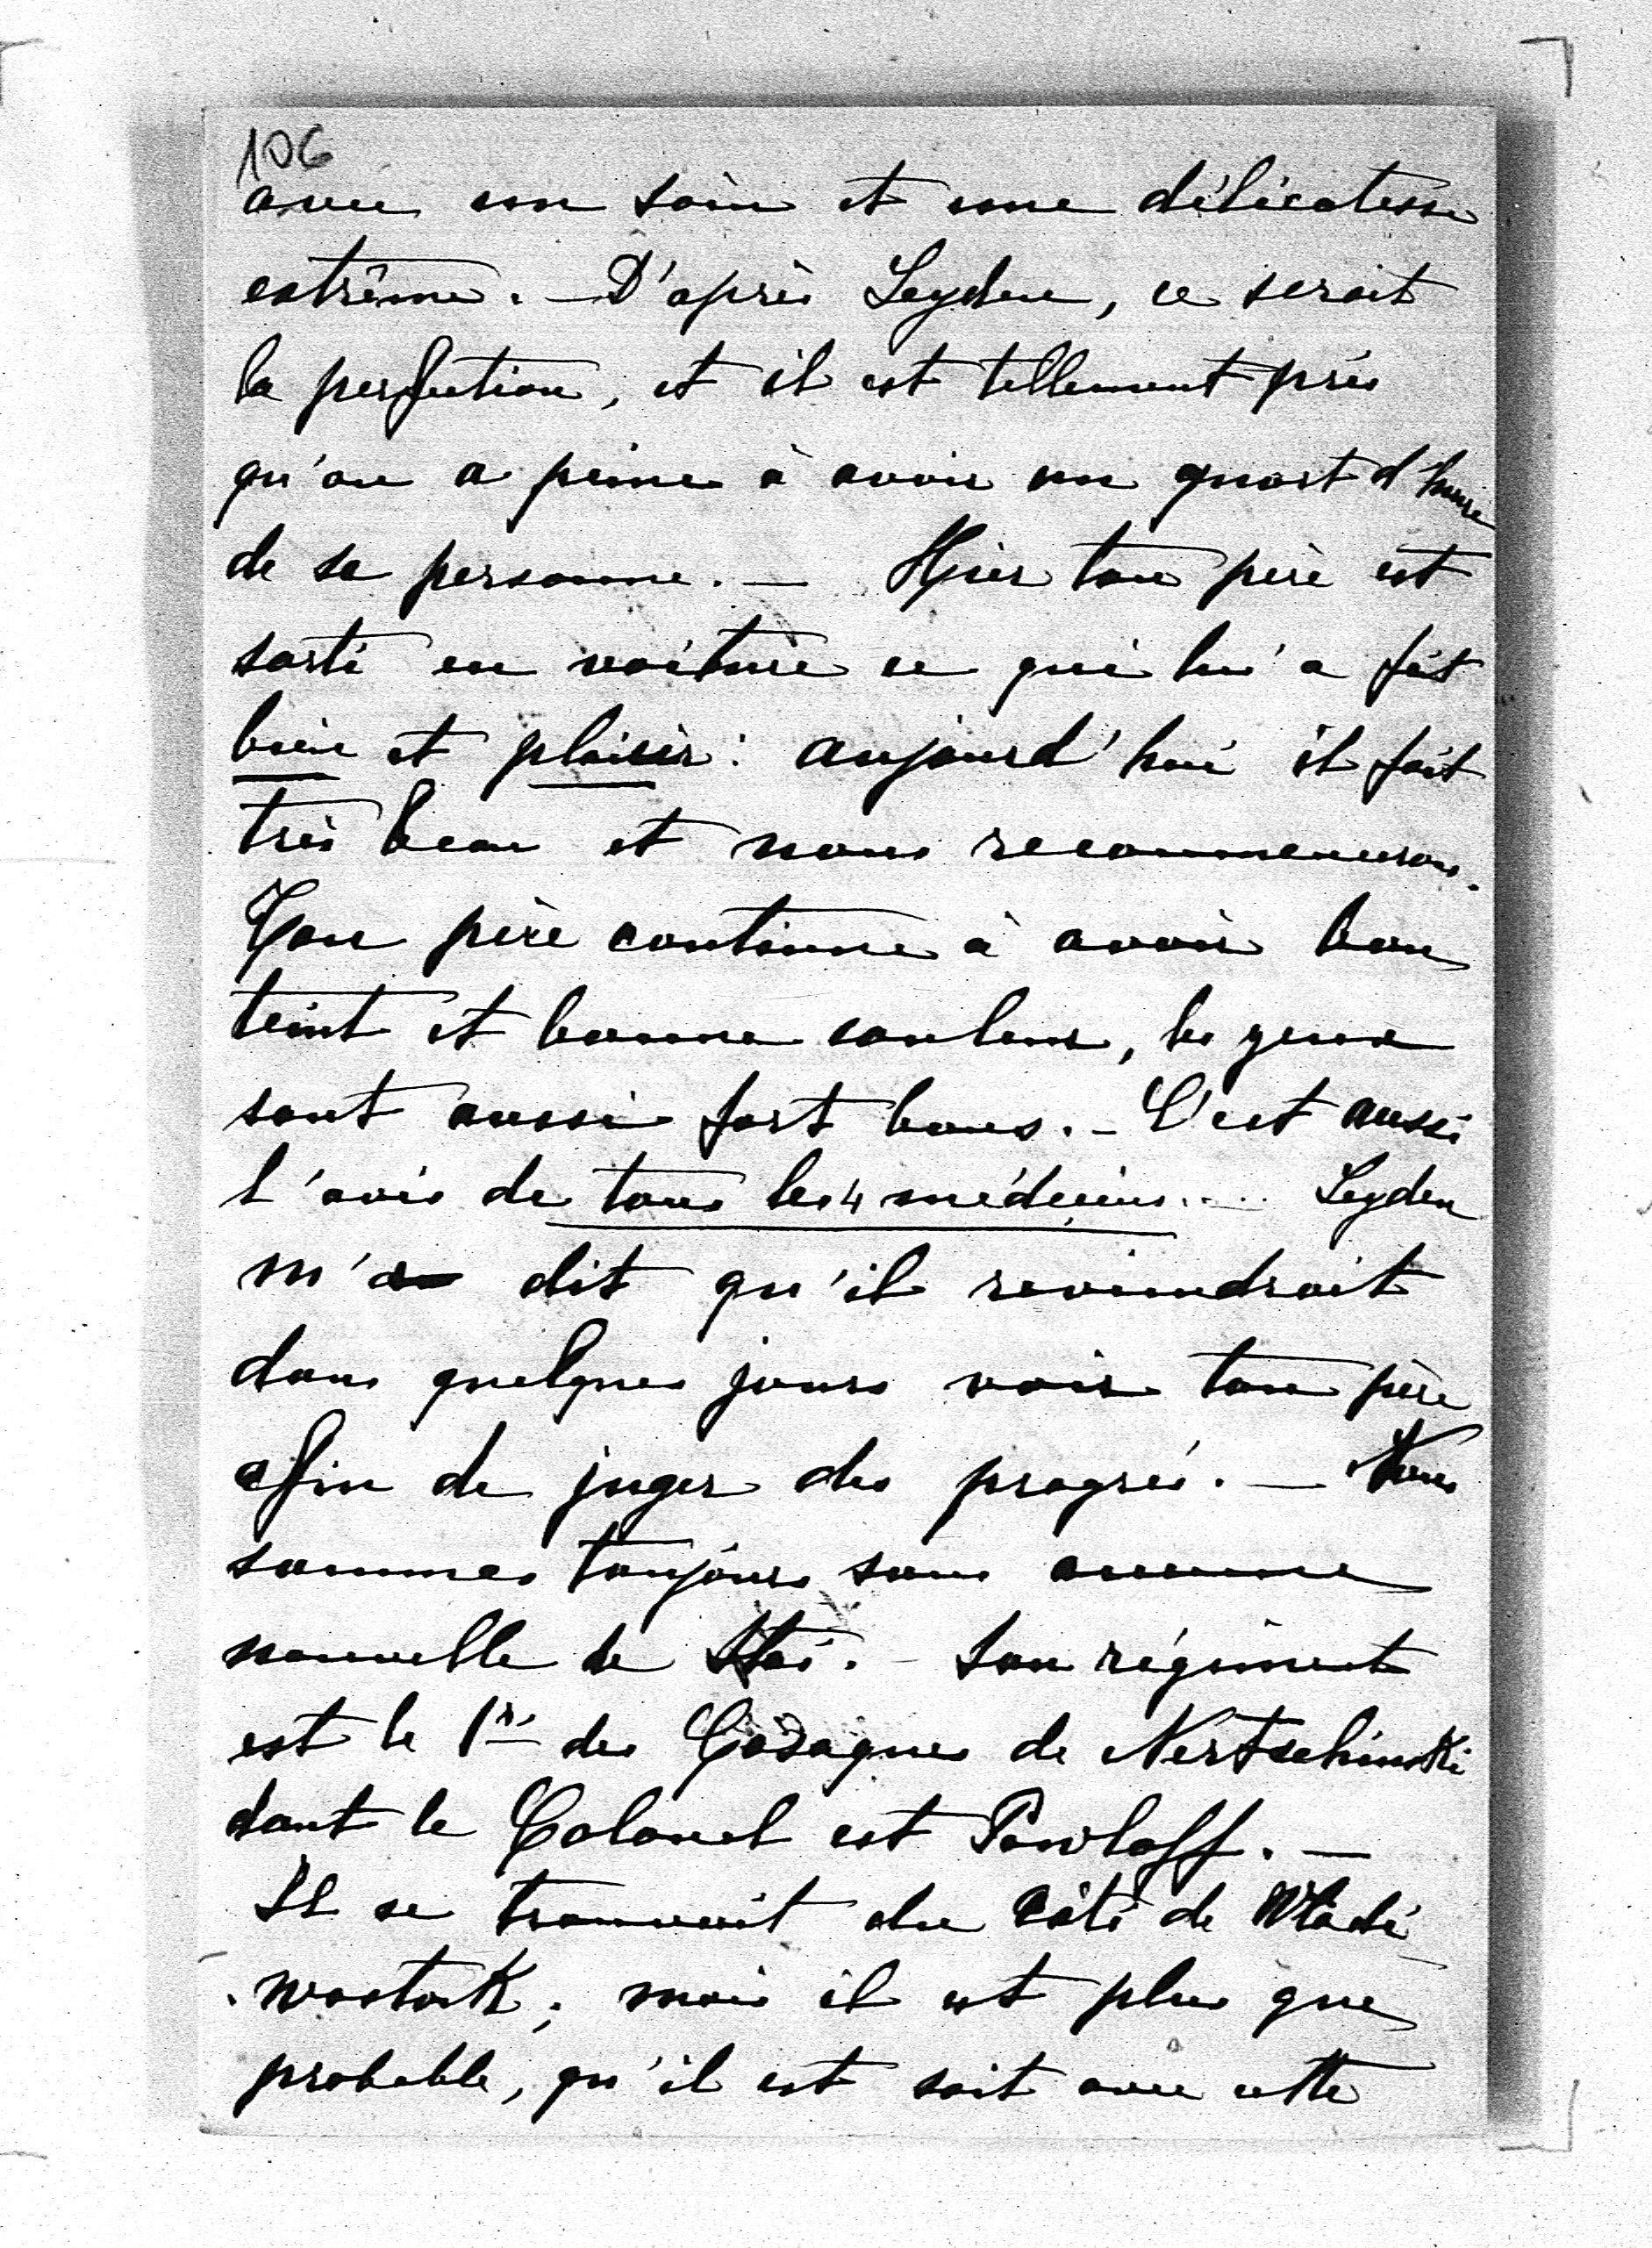 106
avec un soin et une délicatesse
extrême. — D'après Leyden, ce serait
la perfection, et il est tellement pris
qu'on a peine à avoir un quart d'heure
de sa personne. — Hier ton père est
sorti en voiture ce qui lui a fait
bien et plaisir: aujourd'hui il fait
très beau et nous recommencerons.
Ton père continue à avoir bon
teint et bonne couleur, les yeux
sont aussi fort bons. — C'est aussi
l'avis de tous les 4 médecins. — Leyden
m'a dit qu'il reviendrait
dans quelques jours voir ton père
afin de juger des progrès. — Nous
sommes toujours sans aucune
nouvelle de Stai. — Son régiment
est le 1r des Cosaques de Nertschinski
dont le Colonel est Pawloff. —
Il se trouvait du côté de Wladi
wostok; mais il est plus que
probable, qu'il est soit avec cette